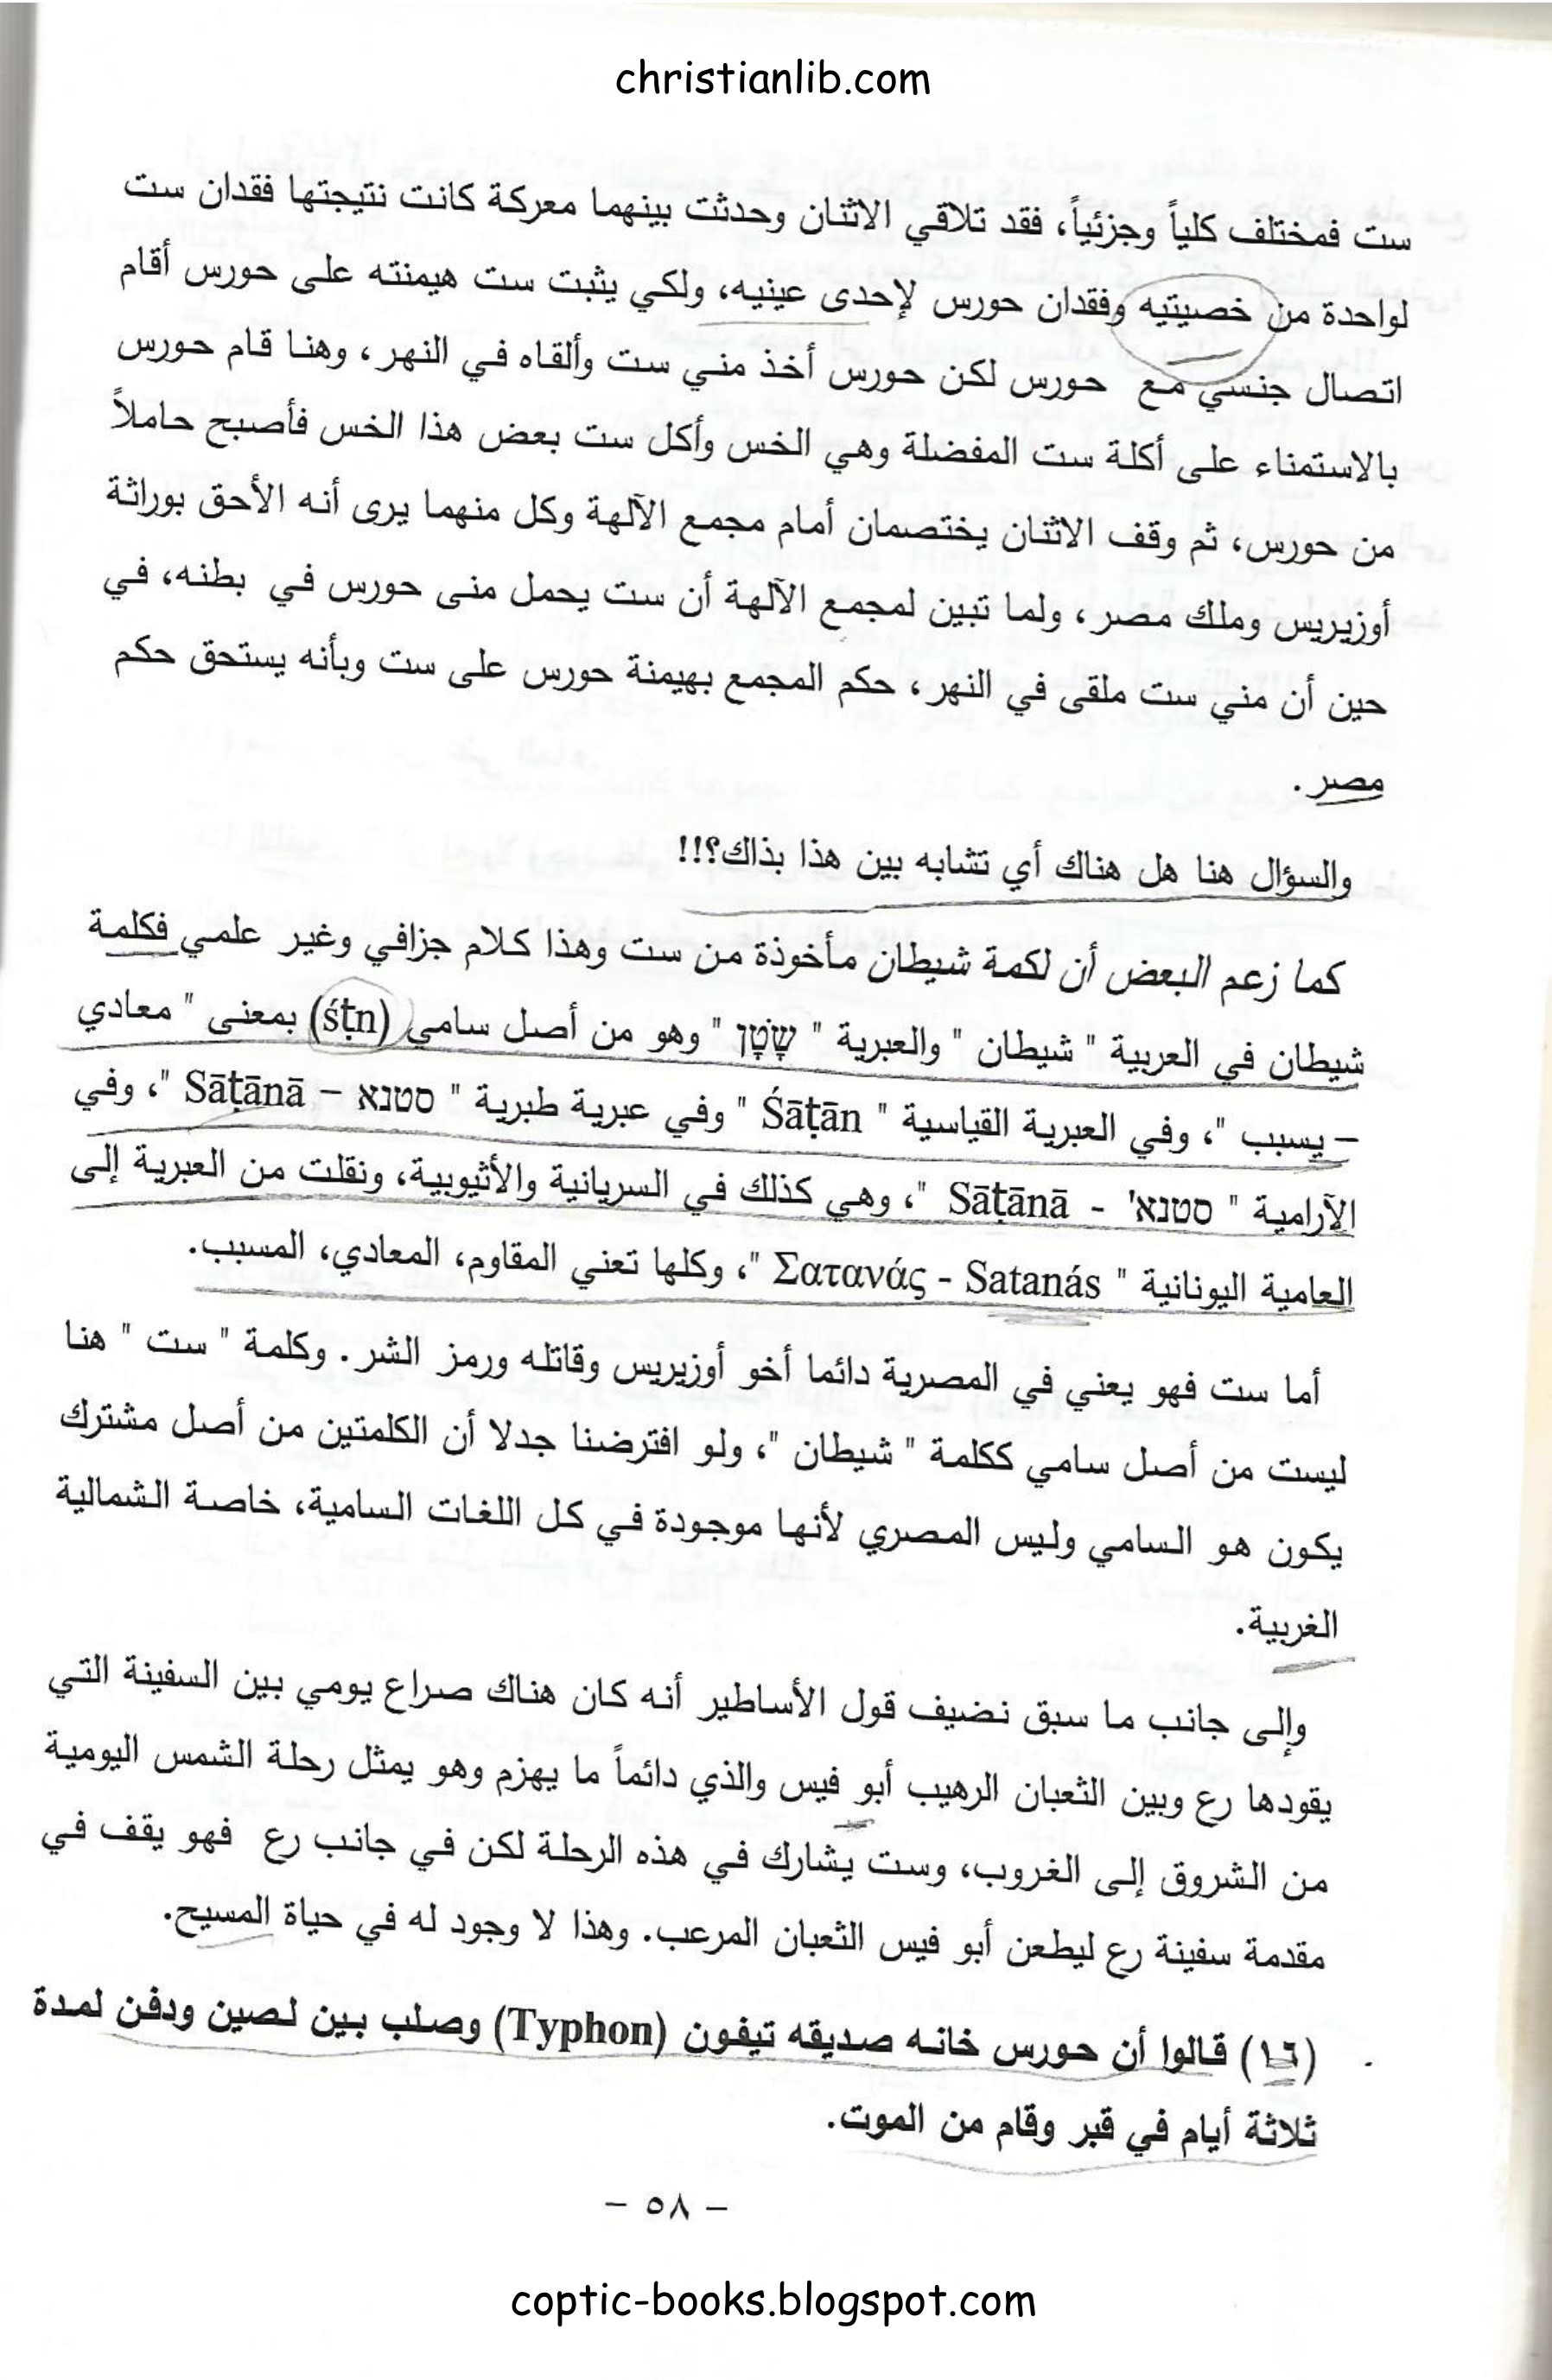 christianlib.com
ست فمختلف كلياً وجزئياً، فقد تلاقي الاثنان وحدثت بينهما معركة كانت نتيجتها فقدان ست
لواحدة من خصيتيه وفقدان حورس لإحدى عينيه، ولكي يثبت ست هيمنته على حورس أقام
اتصال جنسي مع حورس لكن حورس أخذ مني ست وألقاه في النهر، وهنا قام حورس
بالاستمناء على أكلة ست المفضلة وهي الخس وأكل ست بعض هذا الخس فأصبح حاملاً
من حورس، ثم وقف الاثنان يختصمان أمام مجمع الآلهة وكل منهما يرى أنه الأحق بوراثة
أوزيريس وملك مصر، ولما تبين لمجمع الآلهة أن ست يحمل منى حورس في بطنه، في
حين أن مني ست ملقى في النهر، حكم المجمع بهيمنة حورس على ست وبأنه يستحق حكم
مصر.
والسؤال هنا هل هناك أي تشابه بين هذا بذاك؟!!
كما زعم البعض أن لكمة شيطان مأخوذة من ست وهذا كلام جزافي وغير علمي فكلمة
شيطان في العربية " شيطان " والعبرية " שָׂטָן " وهو من أصل سامي (śṭn) بمعنى " معادي
– يسبب "، وفي العبرية القياسية " Śāṭān " وفي عبرية طبرية " סטנא – Sāṭānā "، وفي
الآرامية " סטנא' - Sāṭānā "، وهي كذلك في السريانية والأثيوبية، ونقلت من العبرية إلى
العامية اليونانية " Σατανάς - Satanás "، وكلها تعني المقاوم، المعادي، المسبب.
أما ست فهو يعني في المصرية دائما أخو أوزيريس وقاتله ورمز الشر. وكلمة " ست " هنا
ليست من أصل سامي ككلمة " شيطان "، ولو افترضنا جدلا أن الكلمتين من أصل مشترك
يكون هو السامي وليس المصري لأنها موجودة في كل اللغات السامية، خاصة الشمالية
الغربية.
وإلى جانب ما سبق نضيف قول الأساطير أنه كان هناك صراع يومي بين السفينة التي
يقودها رع وبين الثعبان الرهيب أبو فيس والذي دائماً ما يهزم وهو يمثل رحلة الشمس اليومية
من الشروق إلى الغروب، وست يشارك في هذه الرحلة لكن في جانب رع فهو يقف في
مقدمة سفينة رع ليطعن أبو فيس الثعبان المرعب. وهذا لا وجود له في حياة المسيح.
(١٦) قالوا أن حورس خانه صديقه تيفون (Typhon) وصلب بين لصين ودفن لمدة
ثلاثة أيام في قبر وقام من الموت.
– ٥٨ –
coptic-books.blogspot.com